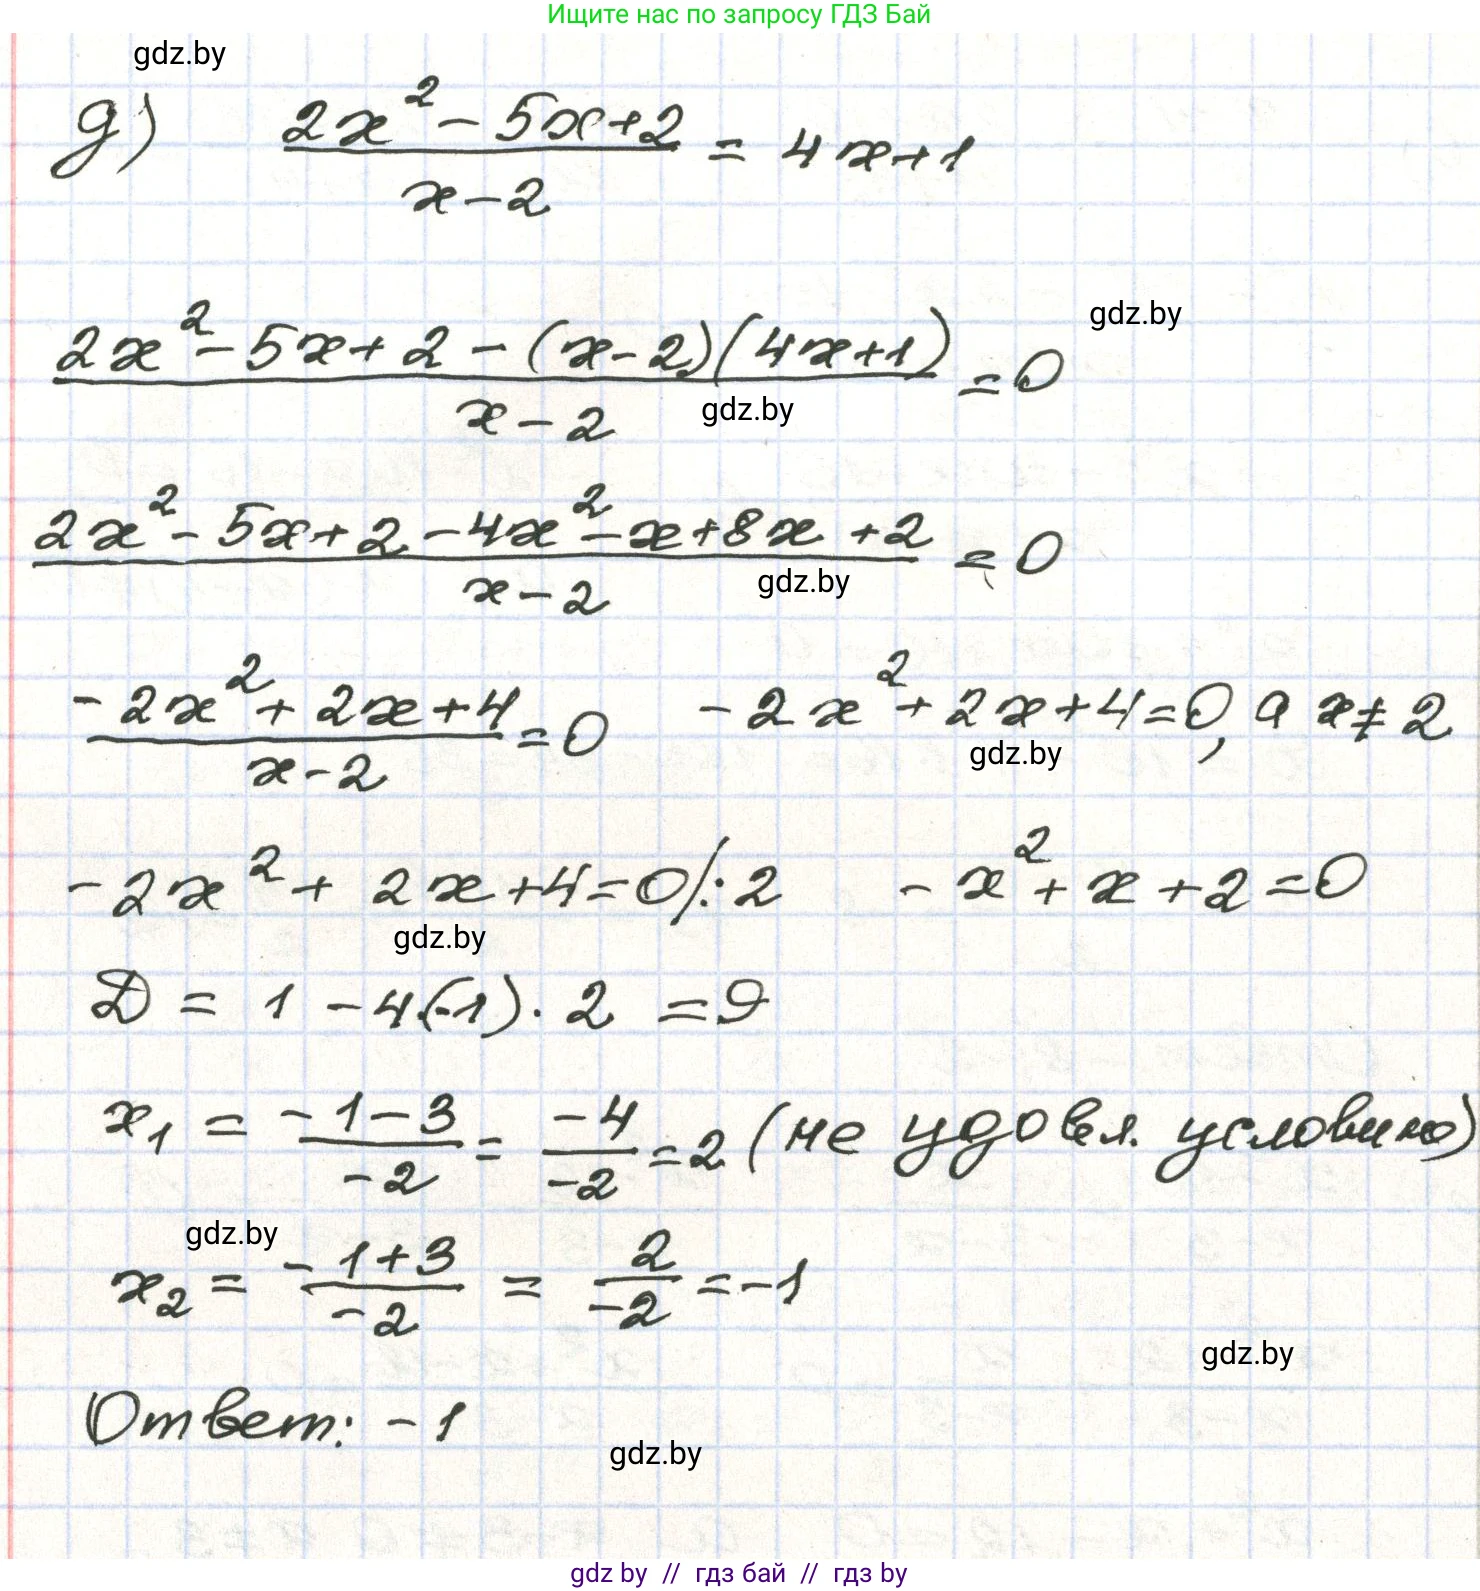 Ищите нас по запросу ГДЗ Бай
gdz.by
д) (2x² - 5x + 2)/(x - 2) = 4x + 1
gdz.by
(2x² - 5x + 2 - (x - 2)(4x + 1))/(x - 2) = 0
gdz.by
(2x² - 5x + 2 - 4x² - x + 8x + 2)/(x - 2) = 0
gdz.by
(-2x² + 2x + 4)/(x - 2) = 0   -2x² + 2x + 4 = 0, а x ≠ 2
gdz.by
-2x² + 2x + 4 = 0 /: 2   -x² + x + 2 = 0
gdz.by
D = 1 - 4·(-1)·2 = 9
x₁ = (-1 - 3)/(-2) = (-4)/(-2) = 2 (не удовл. условию)
gdz.by
x₂ = (-1 + 3)/(-2) = 2/(-2) = -1
gdz.by
Ответ: -1
gdz.by
gdz by // гдз бай // гдз by